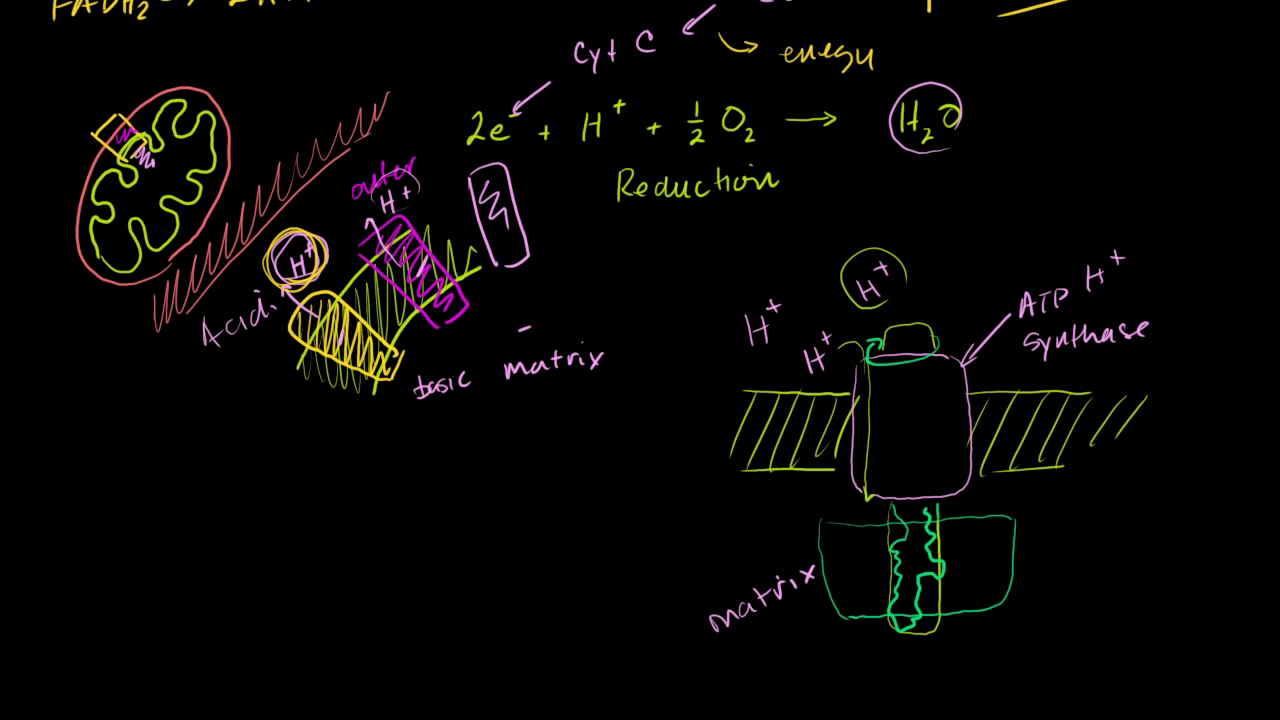 Cyt C
energy
2e⁻ + H⁺ + ½ O₂ → H₂O
Reduction
outer
H⁺
H⁺
Acidic
basic matrix
H⁺
H⁺
H⁺
ATP H⁺
Synthase
matrix